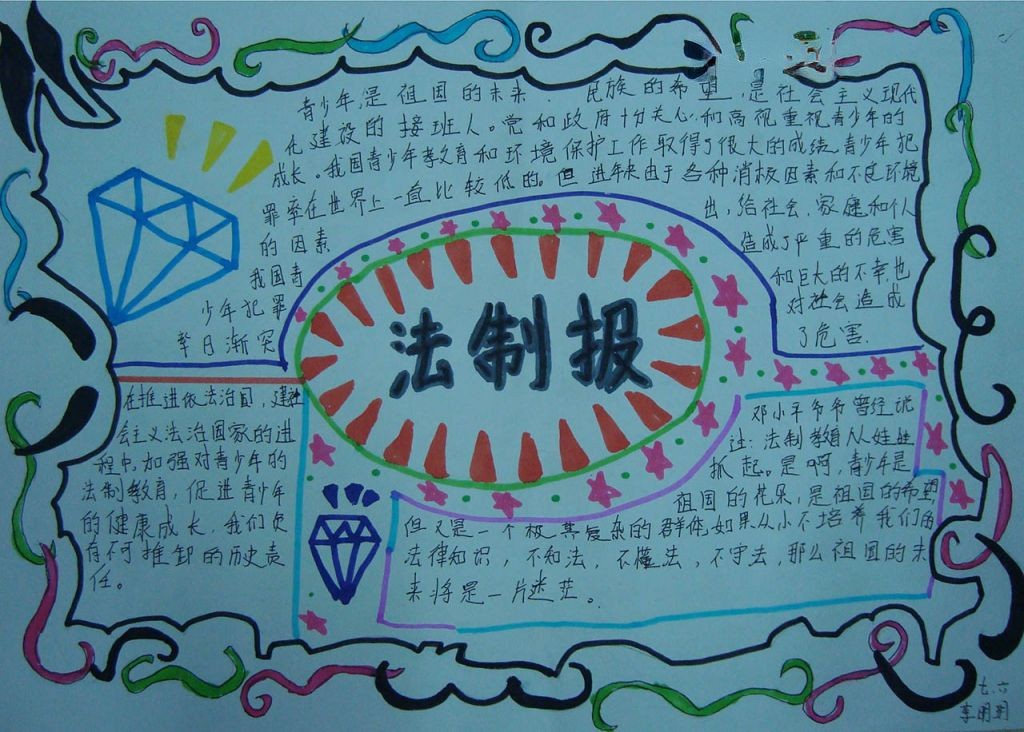 青少年,是祖国的未来、民族的希望,是社会主义现代
化建设的接班人。党和政府十分关心,和高视重视青少年的
成长。我国青少年教育和环境保护工作取得了很大的成绩,青少年犯
罪率在世界上一直比较低的。但近年来由于各种消极因素和不良环境
的因素
我国青
少年犯罪
率日渐突
出,给社会、家庭和个人
造成了严重的危害
和巨大的不幸,也
对社会造成
了危害.
法制报
在推进依法治国,建社
会主义法治国家的进
程中,加强对青少年的
法制教育,促进青少年
的健康成长,我们负
有不可推卸的历史责
任。
邓小平爷爷曾经说
过:法制教育从娃娃
抓起。是啊,青少年是
祖国的花朵,是祖国的希望
但又是一个极其复杂的群体,如果从小不培养我们的
法律知识,不知法,不懂法,不守法,那么祖国的未
来将是一片迷茫。
七.六